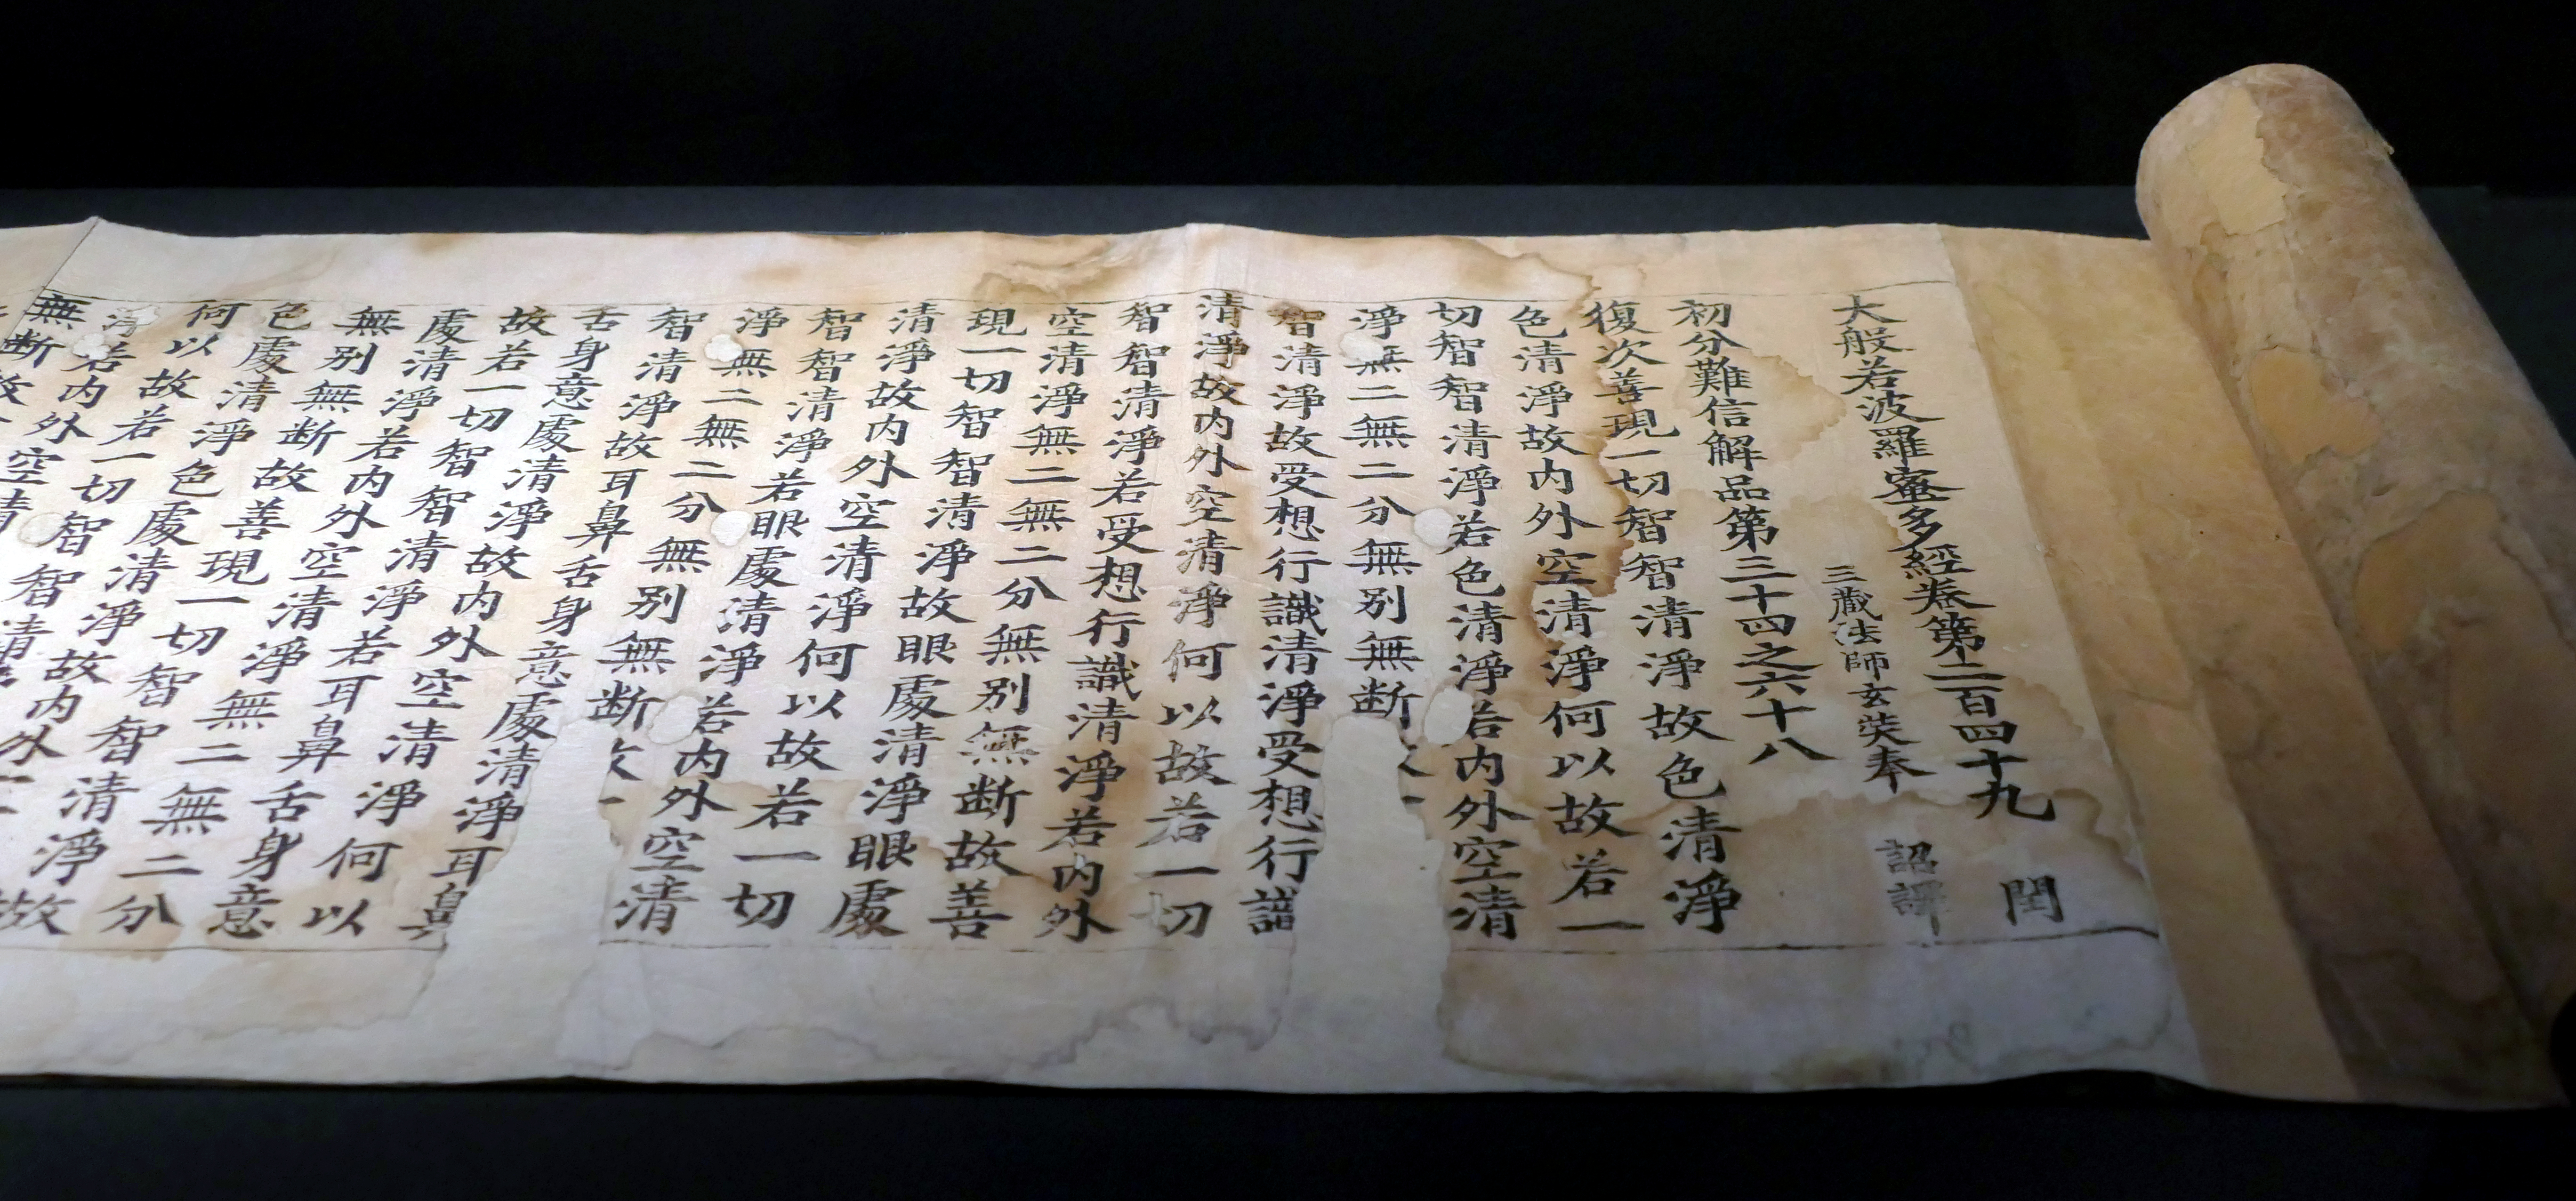 大般若波羅蜜多經卷第二百四十九 閏
三藏法師玄奘奉 詔譯
初分難信解品第三十四之六十八
復次善現一切智智清淨故色清淨
色清淨故内外空清淨何以故若一
切智智清淨若色清淨若内外空清
淨無二無二分無別無断故一
智清淨故受想行識清淨受想行識
清淨故内外空清淨何以故若一切
智智清淨若受想行識清淨若内外
空清淨無二無二分無別無断故善
現一切智智清淨故眼處清淨眼處
清淨故内外空清淨何以故若一切
智智清淨若眼處清淨若内外空清
淨無二無二分無別無断故一
智清淨故耳鼻舌身意處清淨耳鼻
舌身意處清淨故内外空清淨何以
故若一切智智清淨若耳鼻舌身意
處清淨若内外空清淨無二無二分
無別無断故善現一切智智清淨故
色處清淨色處清淨故内外
何以故若一切智智清
淨若内外空清
無断故